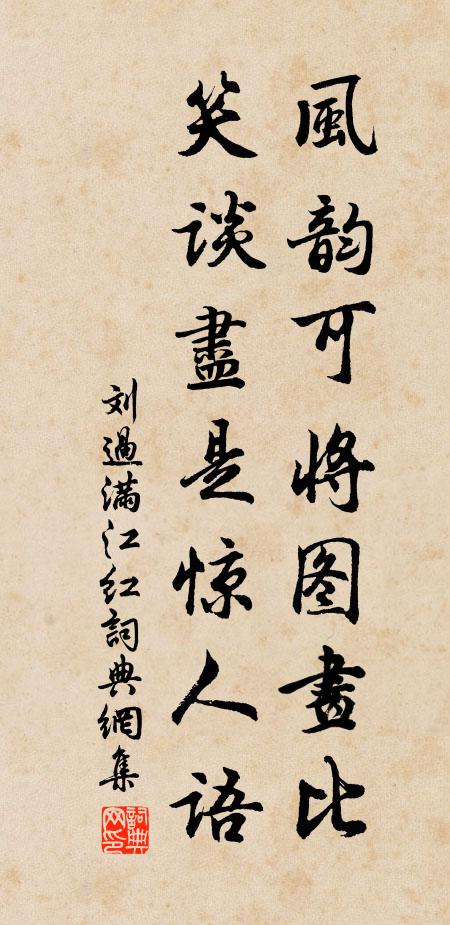 風韵可将图畫比
笑谈盡是惊人语
刘過满江红詞典網集
詞典网印